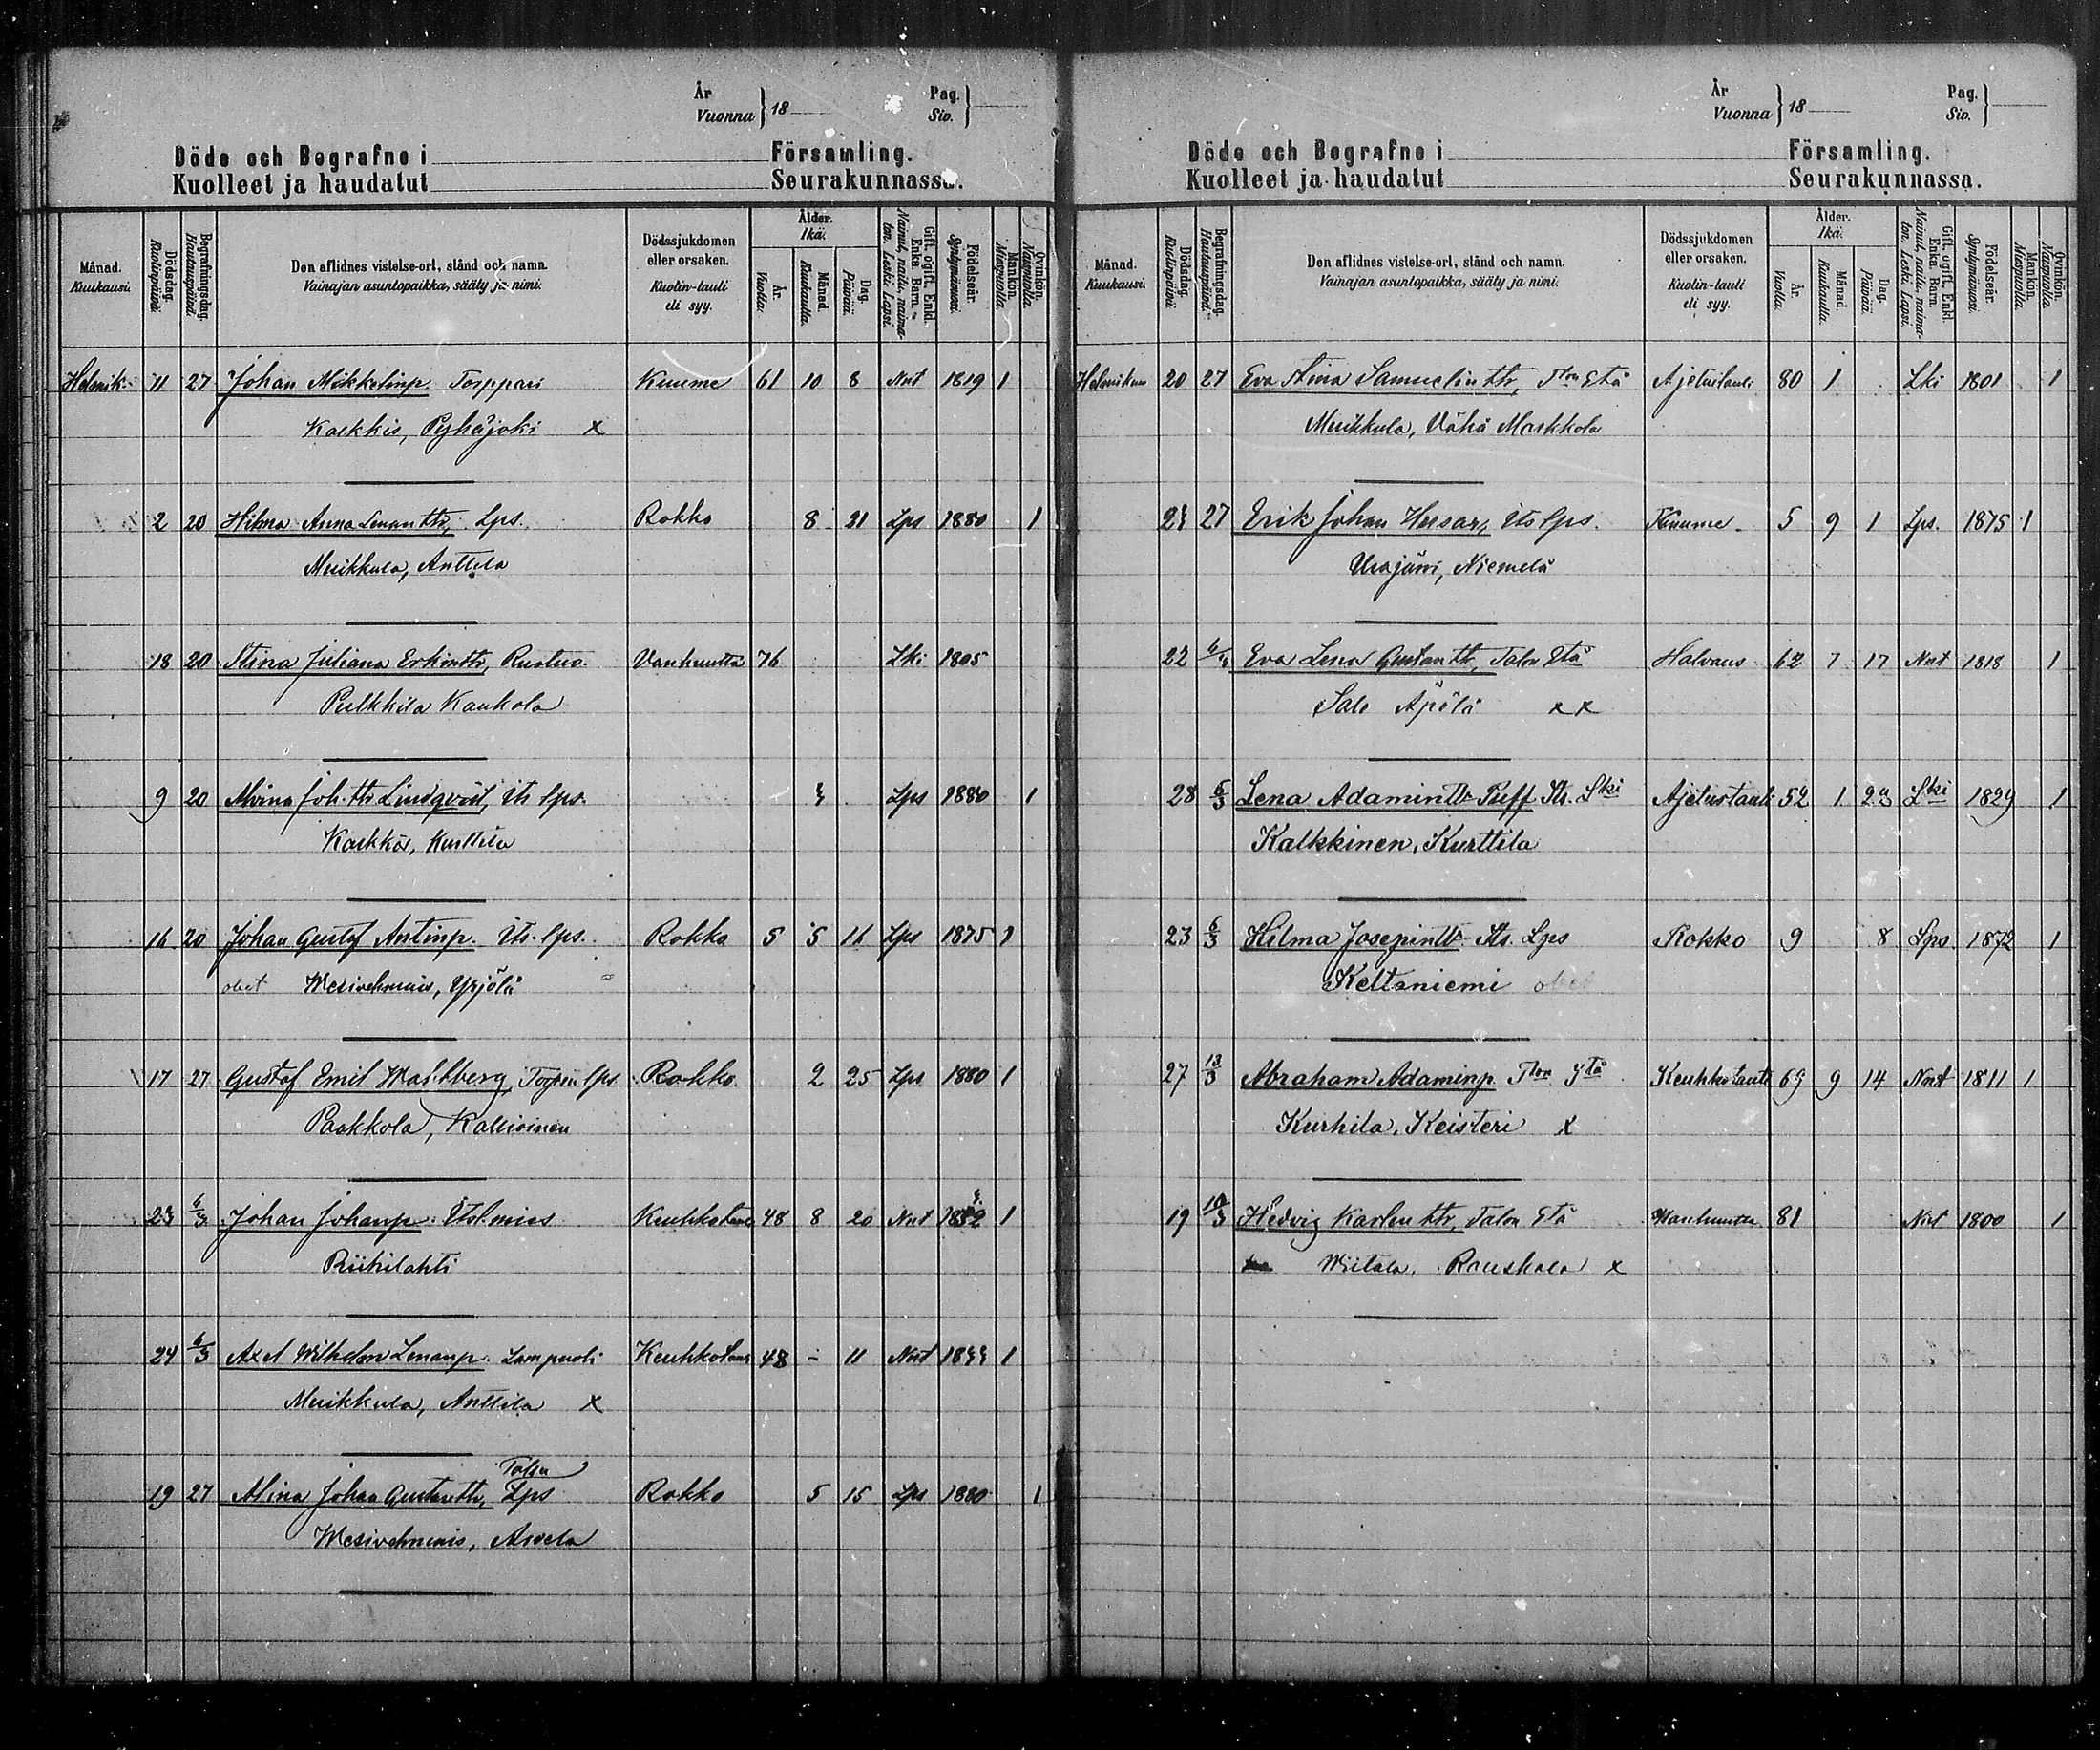 År
Vuonna } 18
Pag.
Siv. }
Döde och Begrafne i Församling.
Kuolleet ja haudatut Seurakunnassa.
Månad. Kuukausi.
Dödsdag. Kuolinpäivä.
Begrafningsdag. Hautauspäivä.
Den aflidnes vistelse-ort, stånd och namn. Vainajan asuntopaikka, sääty ja nimi.
Dödssjukdomen eller orsaken. Kuolin-tauti eli syy.
Ålder. Ikä.
År. Vuotta.
Månad. Kuukautta.
Dag. Päivää.
Gift, ogift, Enkl. Enka. Barn. Nainut, naitu, naimaton. Leski. Lapsi.
Födelseår. Syntymävuosi.
Mankön. Miespuolta.
Qvinkön. Naispuolta.
Helmik. 11 27 Johan Mikkelinp. Torppari Kuume 61 10 8 Nnt 1819 1
Kalkkis, Pyhäjoki x
2 20 Hilma Anna Leenantr, Lps. Rokko 8 21 Lps 1880 1
Muikkula, Anttila
18 20 Stina Juliana Erkintr, Ruotuv. Vanhuutta 76 Lki 1805
Pulkkila Kauhola
9 20 Alvina Joh. tr Lindqvist, Its lps. Lps 1880 1
Kalkkis, Kurttila
16 20 Johan Gustaf Antinp. Its. lps. Rokko 5 5 16 Lps 1875 1
obet Mesivehmais, Yrjölä
17 27 Gustaf Emil Wahlberg, Torpn lps Rokko 2 25 Lps 1880 1
Paakkola, Kallioinen
23 6/3 Johan Johanp. Itsl. mies Keuhkotauti 48 8 20 Nnt 1832 1
Riihilahti
24 6/3 Axel Wilhelm Lenanp. Lampuoti Keuhkotauti 48 - 11 Nnt 1 1
Muikkula, Anttila x
Talon
19 27 Alina Johan Gustavtr, Lps Rokko 5 15 Lps 1880 1
Mesivehmais, Arvela
År
Vuonna } 18
Pag.
Siv. }
Döde och Begrafne i Församling.
Kuolleet ja haudatut Seurakunnassa.
Månad. Kuukausi.
Dödsdag. Kuolinpäivä.
Begrafningsdag. Hautauspäivä.
Den aflidnes vistelse-ort, stånd och namn. Vainajan asuntopaikka, sääty ja nimi.
Dödssjukdomen eller orsaken. Kuolin-tauti eli syy.
Ålder. Ikä.
År. Vuotta.
Månad. Kuukautta.
Dag. Päivää.
Gift, ogift, Enkl. Enka. Barn. Nainut, naitu, naimaton. Leski. Lapsi.
Födelseår. Syntymävuosi.
Mankön. Miespuolta.
Qvinkön. Naispuolta.
Helmikuu 20 27 Eva Stina Samuelintr, Tlon Etä Ajetustauti 80 1 Lki 1801 1
Muikkula, Vähä Markkola
27 Erik Johan Husar, Its lps. Kuume 5 9 1 Lps. 1875 1
Urajärvi, Niemelä
22 Eva Lena Gustantr, Talon Etä Halvaus 62 7 17 Nnt 1818 1
Salo Äpölä xx
28 6/3 Lena Adamintr Puff Its. Lki Ajetustauti 52 1 Lki 1829 1
Kalkkinen, Kurttila
23 6/3 Hilma Josepintr Its. Lps Rokko 9 8 Lps 1872 1
Keltaniemi obet
27 13/3 Abraham Adaminp Tlon Stä Keuhkotauti 69 9 14 Nnt 1811 1
Kurhila, Keisteri x
19 Hedvig Karlentr, Talon Etä Wanhuutta 81 Nnt 1800 1
Wiitala, Rauskala x